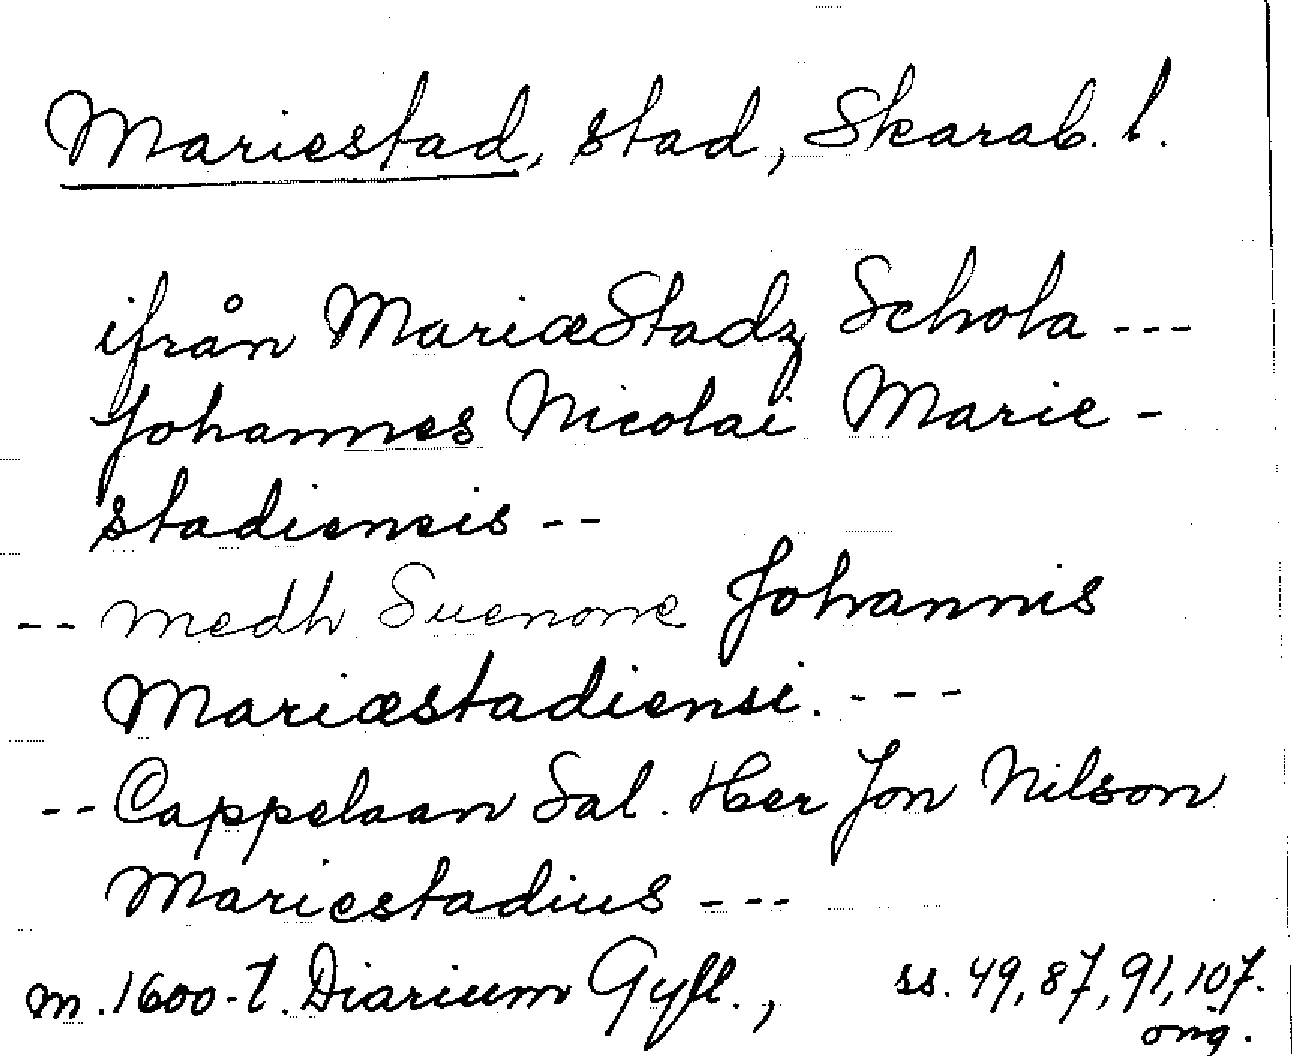 Mariestad, stad, Skarab. l.
ifrån MariæStadz Schola ---
Johannes Nicolai Marie-
stadiensis --
-- medh Suenone Johannis
Mariæstadiensi. ---
-- Cappelaan Sal. Her Jon Nilson
Mariestadius ---
m. 1600-t. Diarium Gyll., ss. 49, 87, 91, 107.
orig.